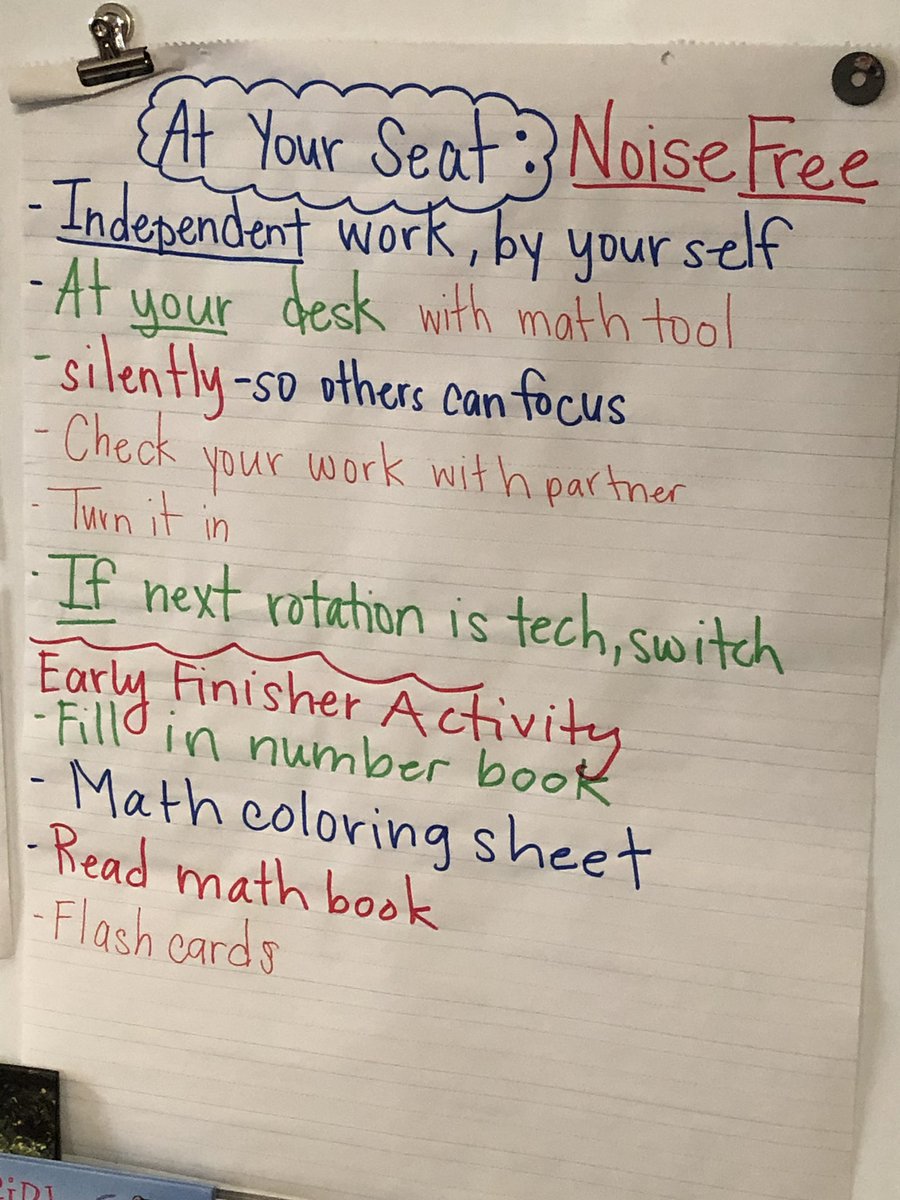 At Your Seat: Noise Free
- Independent work, by your self
- At your desk with math tool
- silently - so others can focus
- Check your work with partner
- Turn it in
- If next rotation is tech, switch
Early Finisher Activity
- Fill in number book
- Math coloring sheet
- Read math book
- Flash cards